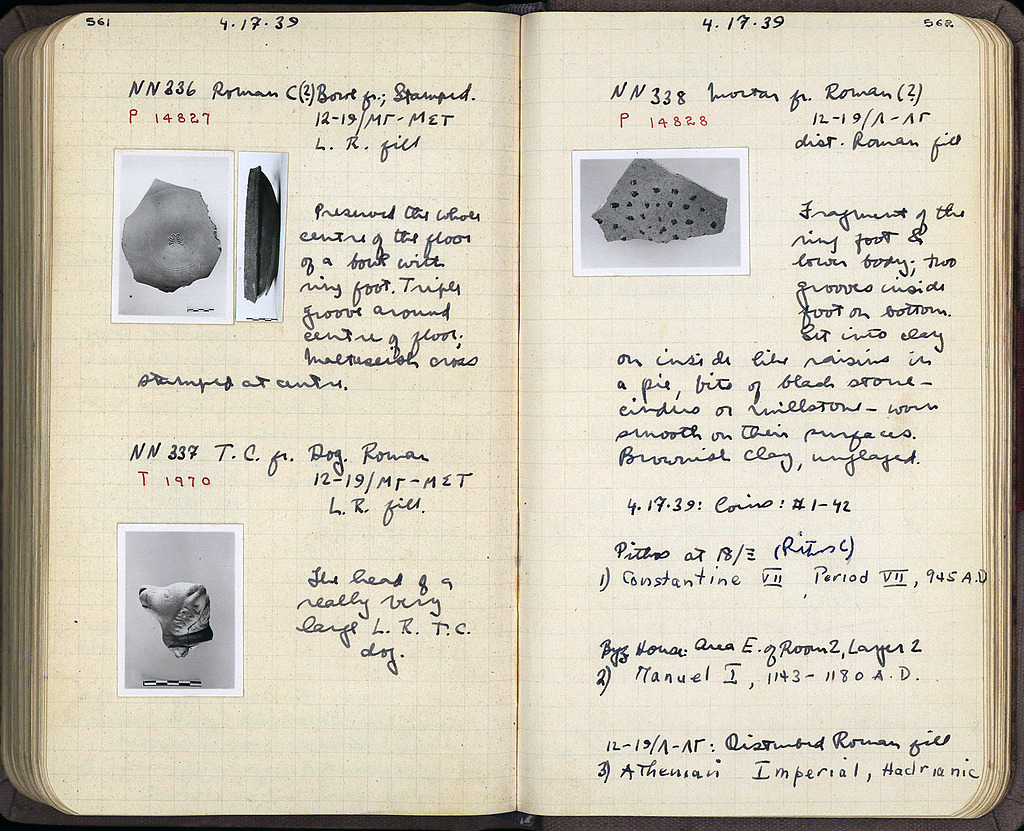 561
4.17.39
NN336 Roman C(?) Bowl fr.; Stamped.
P 14827
12-19/ΜΓ-ΜΣΤ
L. R. fill
Preserved the whole
centre of the floor
of a bowl with
ring foot. Triple
groove around
centre of floor;
Malteseish cross
stamped at centre.
NN 337 T. C. fr. Dog. Roman
T 1970
12-19/ΜΓ-ΜΣΤ
L. R. fill.
The head of a
really very
large L. R. T.C.
dog.
562
4.17.39
NN 338 Mortar fr. Roman (?)
P 14828
12-19/Λ-ΛΓ
dist. Roman fill
Fragment of the
ring foot &
lower body; two
grooves inside
foot on bottom.
Set into clay
on inside like raisins in
a pie, bits of black stone-
cinders or millstone - worn
smooth on their surfaces.
Brownish clay, unglazed.
4.17.39: Coins: #1-42
Pithos at 18/Ξ (Pithos C)
1) Constantine VII, Period VII, 945 A.D
Byz House: Area E. of Room 2, Layer 2
2) Manuel I, 1143-1180 A.D.
12-19/Λ-ΛΓ: Disturbed Roman fill
3) Athenian Imperial, Hadrianic